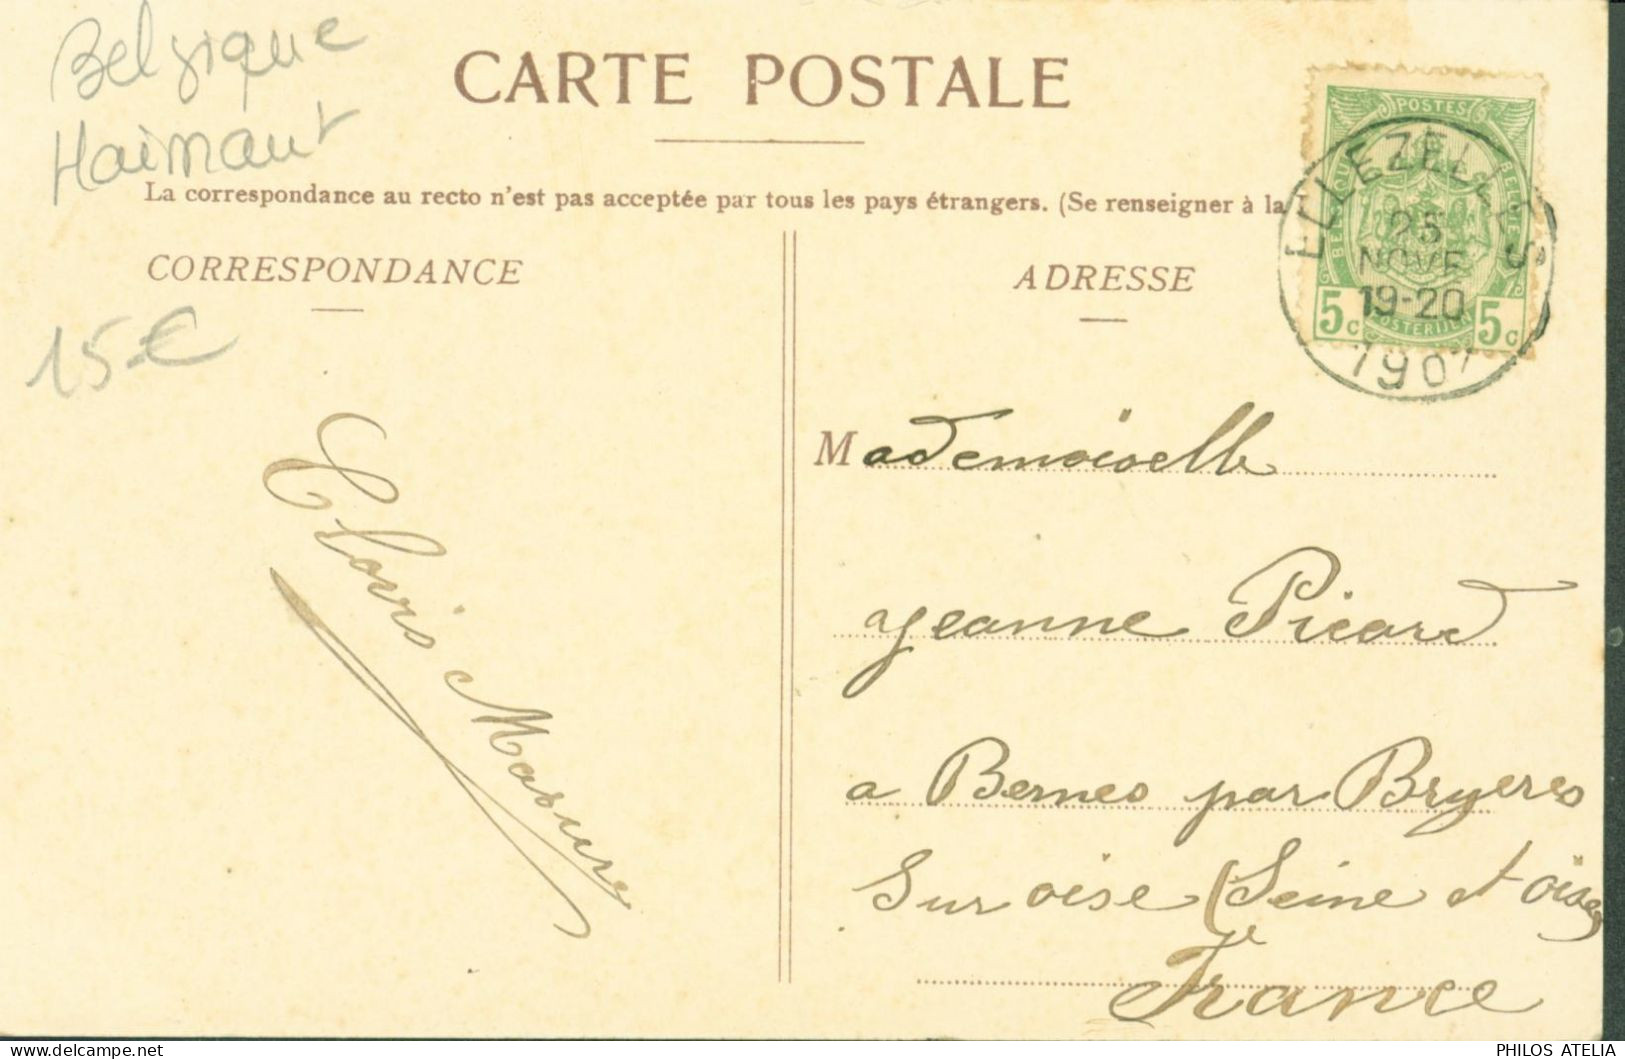 Belgique
Hainaut
CARTE POSTALE
La correspondance au recto n'est pas acceptée par tous les pays étrangers. (Se renseigner à la
CORRESPONDANCE
ADRESSE
POSTES
BELGIQUE
BELGIË
5c
POSTERIJEN
5c
ELLEZELLES
25
NOVE
19-20
1907
15€
Mademoiselle
Clovis Masure
Jeanne Picard
a Bernes par Bruyeres
Sur oise (Seine et oise)
France
PHILOS ATELIA